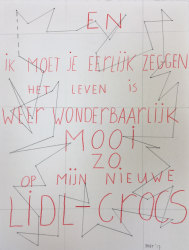 EN
ik MOET JE EERLIJK ZEGGEN
HET LEVEN IS
WEER WONDERBAARLIJK
MOOI
ZO
OP MIJN NIEUWE
LiDL-CROCS